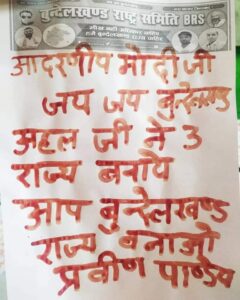 बुन्देलखण्ड राष्ट्र समिति BRS
आदरणीय मोदी जी
जय जय बुन्देलखण्ड
अटल जी ने 3
राज्य बनाये
आप बुन्देलखण्ड
राज्य बनाओ
प्रवीण पाण्डेय